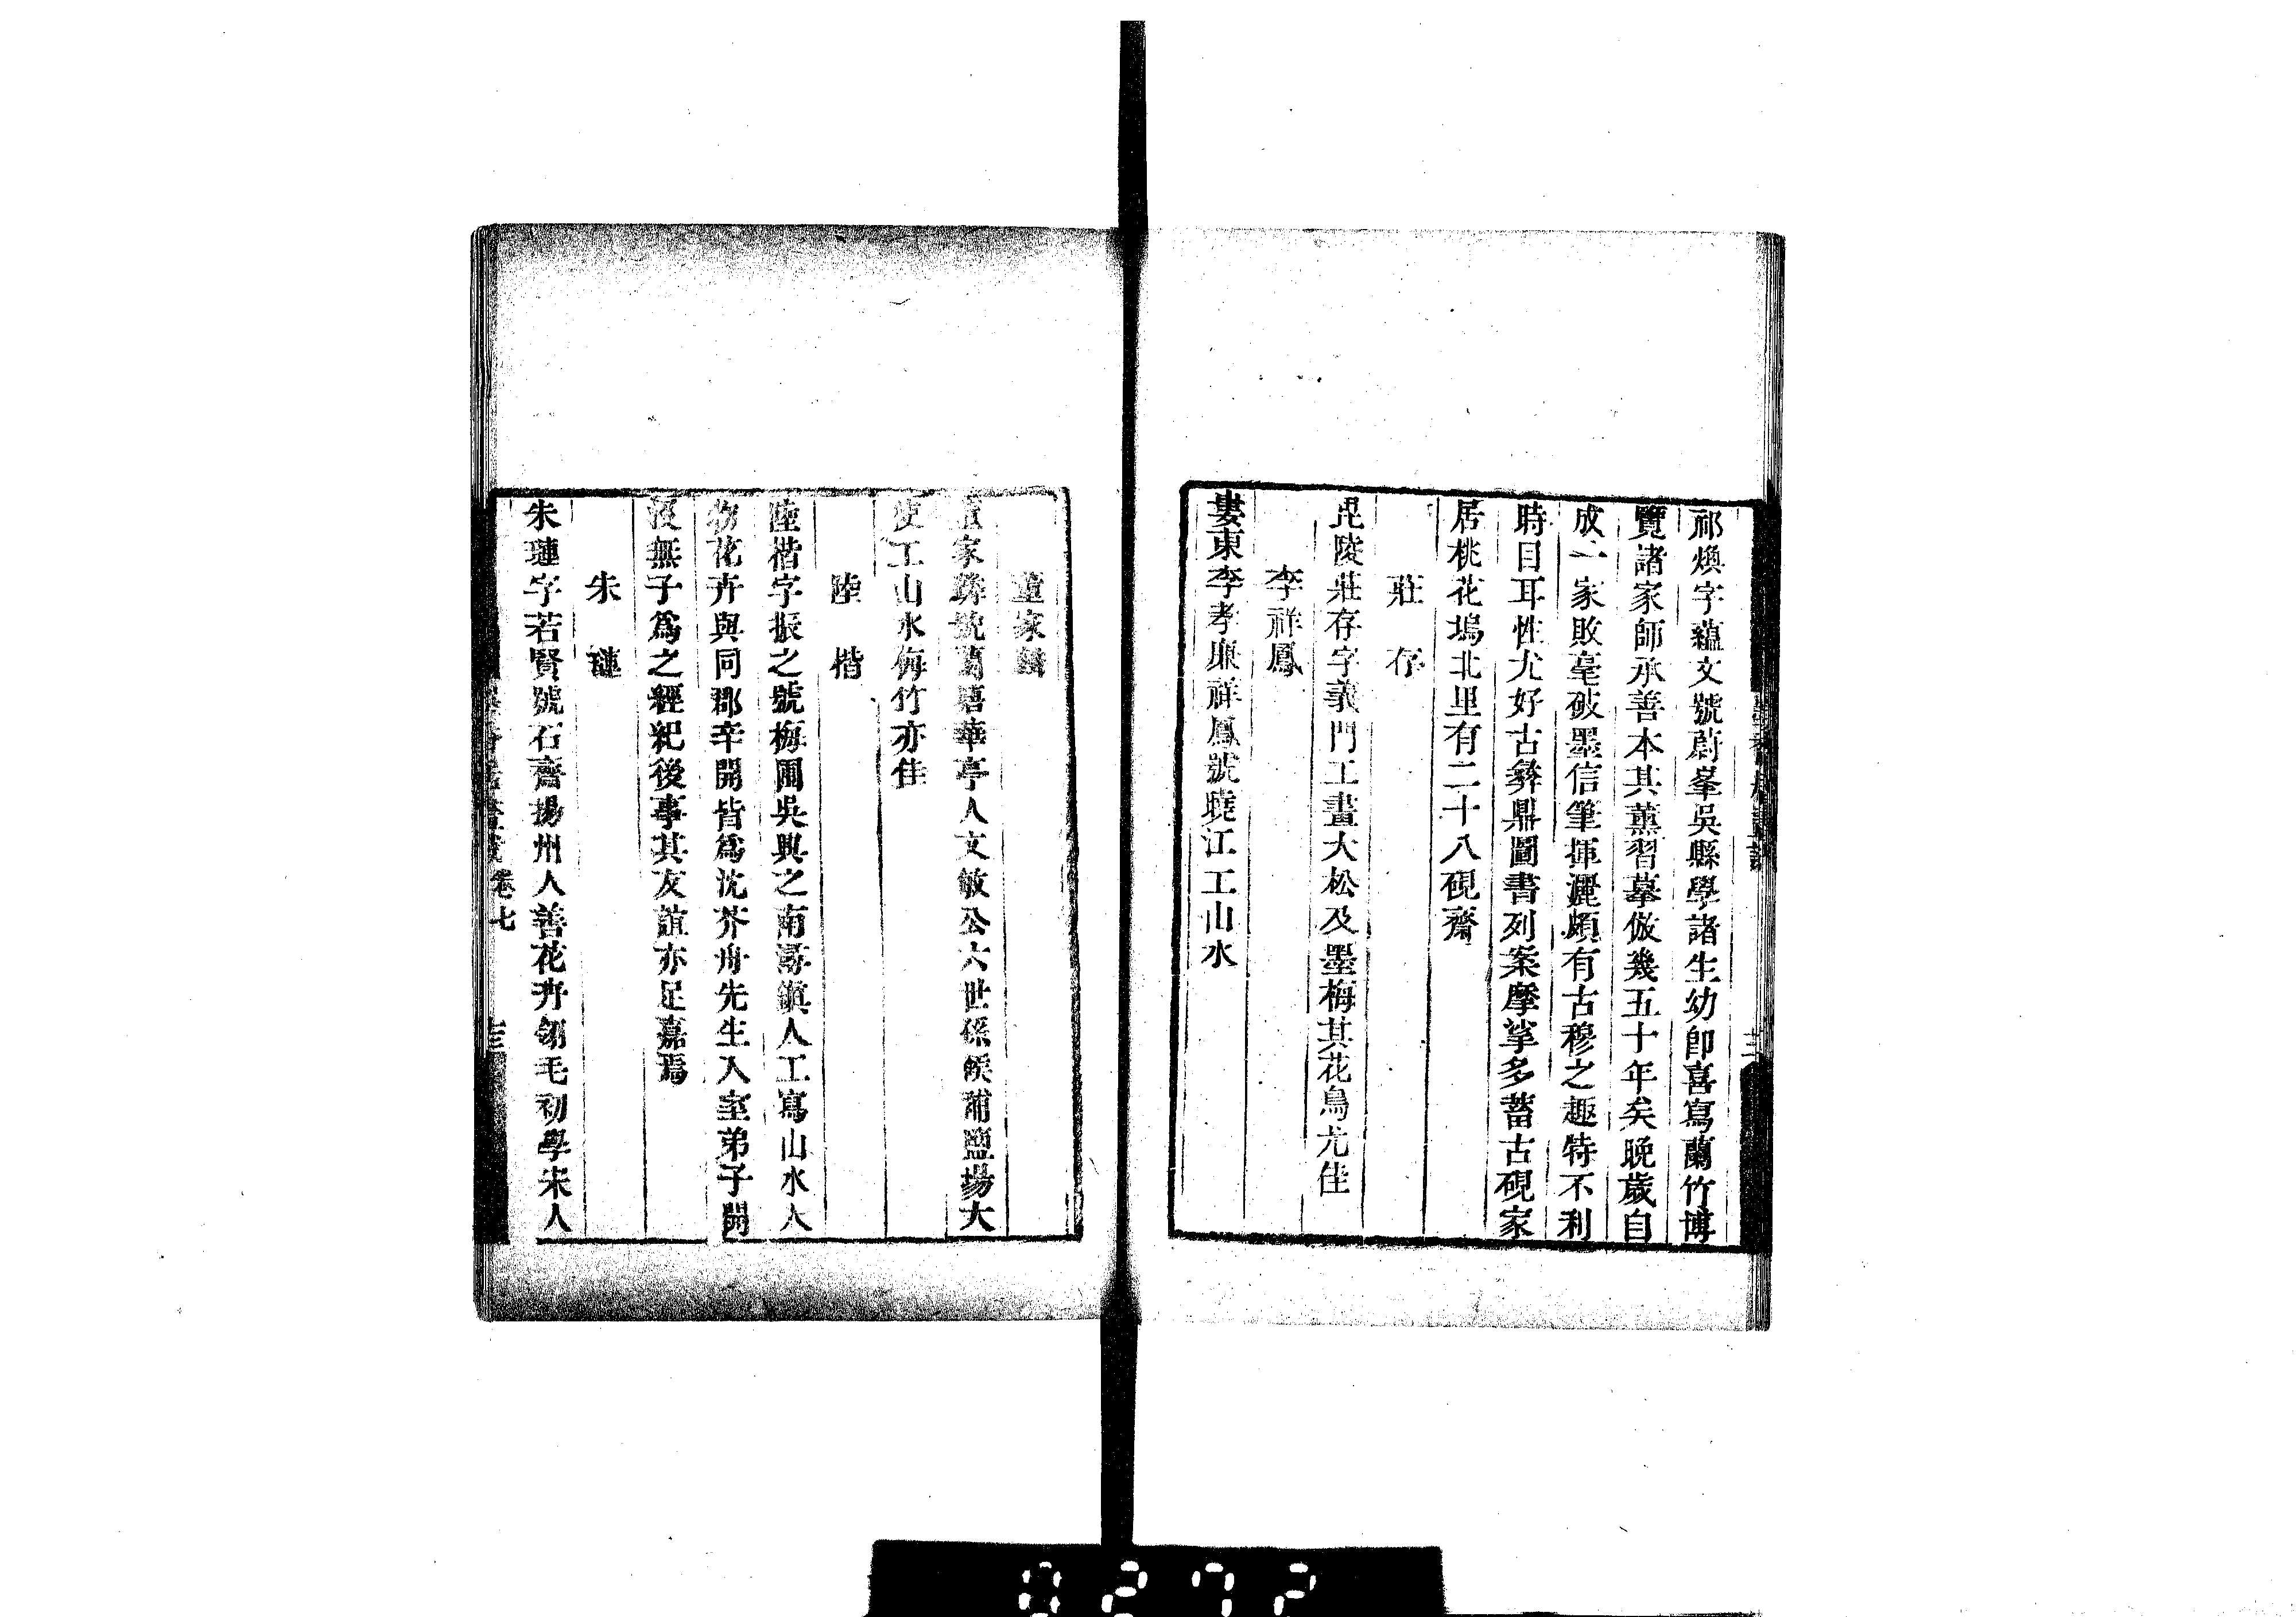 祁煥字蘊文號蔚峯吳縣學諸生幼卽喜寫蘭竹博
覽諸家師承善本其薰習摹倣幾五十年矣晚歲自
成一家敗毫破墨信筆揮灑頗有古穆之趣特不利
時目耳性尤好古彝鼎圖書列案摩挲多蓄古硯家
居桃花塢北里有二十八硯齋
莊存
毘陵莊存字義門工畫大松及墨梅其花鳥尤佳
李祥鳳
婁東李孝廉祥鳳號曉江工山水
董家
家號華亭人文敏公六世孫候補鹽場大
使工山水梅竹亦佳
陸楷
陸楷字振之號梅圃吳興之南潯鎮人工寫山水人
物花卉與同郡辛開皆爲沈芥舟先生入室弟子開
沒無子爲之經紀後事其友誼亦足嘉焉
朱璉
朱璉字若賢號石齋揚州人善花卉翎毛初學宋人
卷七
0272